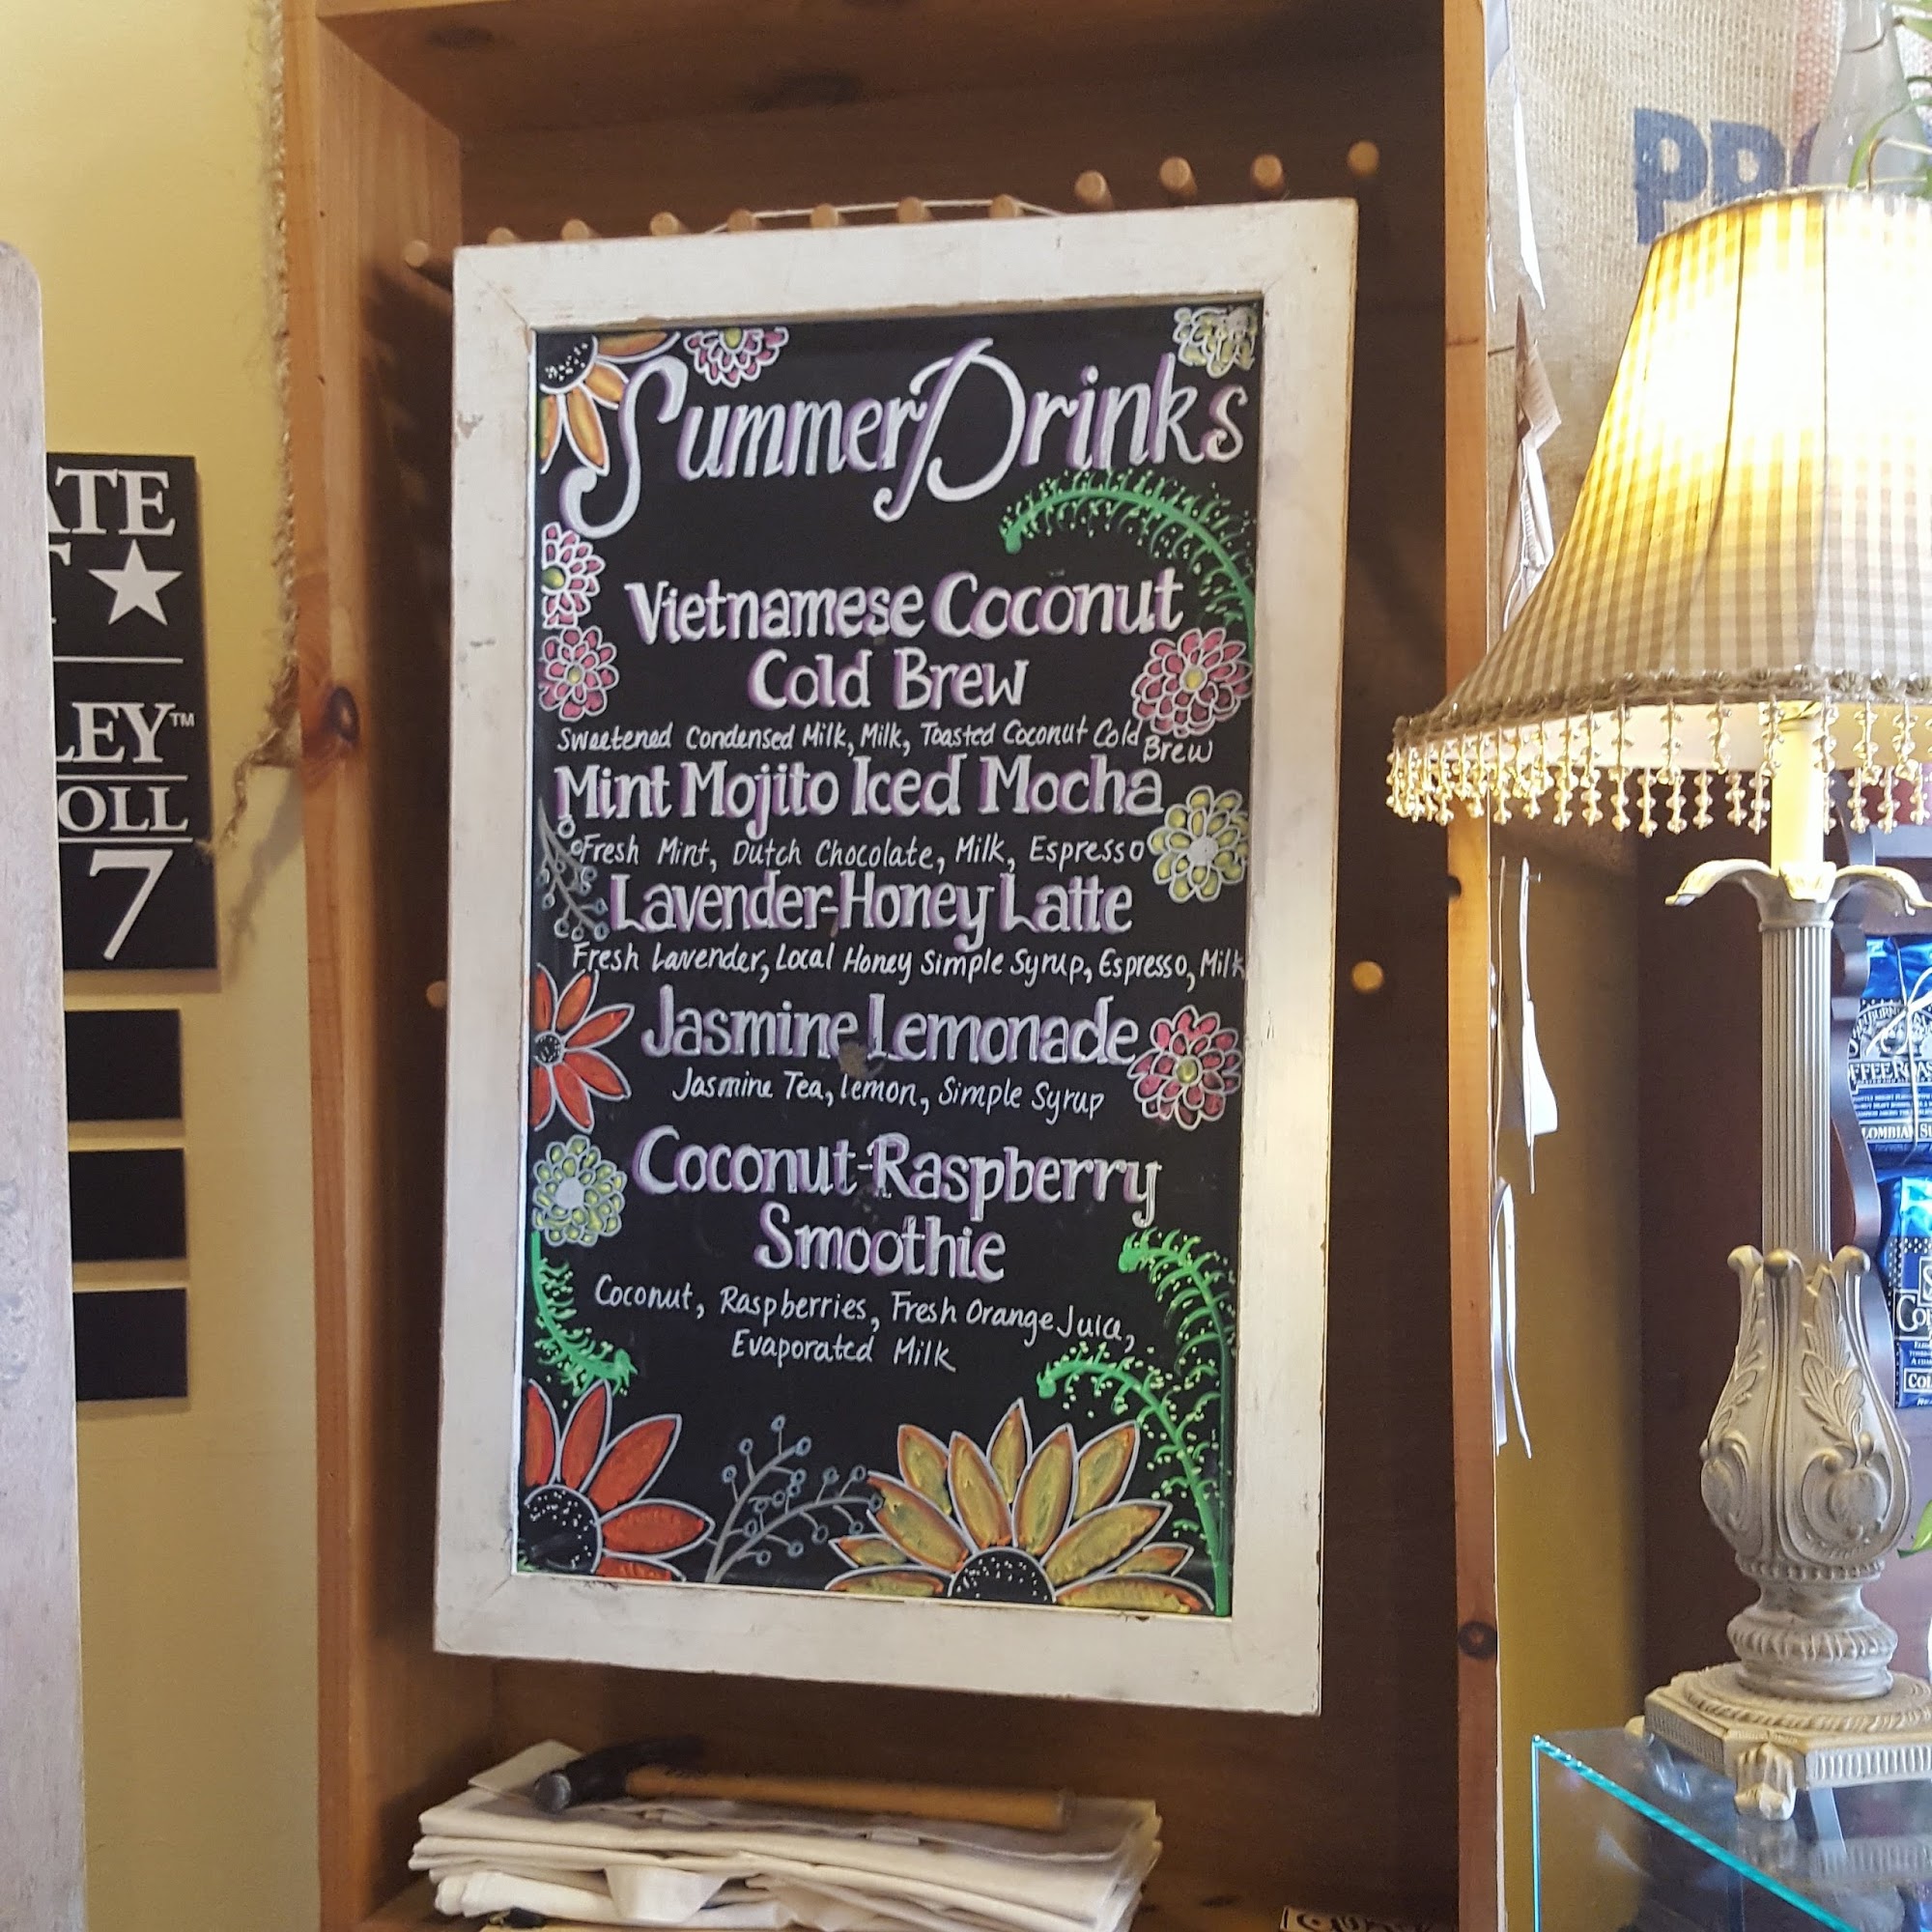 Summer Drinks
Vietnamese Coconut
Cold Brew
Sweetened Condensed Milk, Milk, Toasted Coconut Cold
Brew
Mint Mojito Iced Mocha
Fresh Mint, Dutch Chocolate, Milk, Espresso
Lavender-Honey Latte
Fresh Lavender, Local Honey Simple Syrup, Espresso, Milk
Jasmine Lemonade
Jasmine Tea, Lemon, Simple Syrup
Coconut-Raspberry
Smoothie
Coconut, Raspberries, Fresh Orange Juice,
Evaporated Milk
ATE
LEY™
OLL
7
PRO